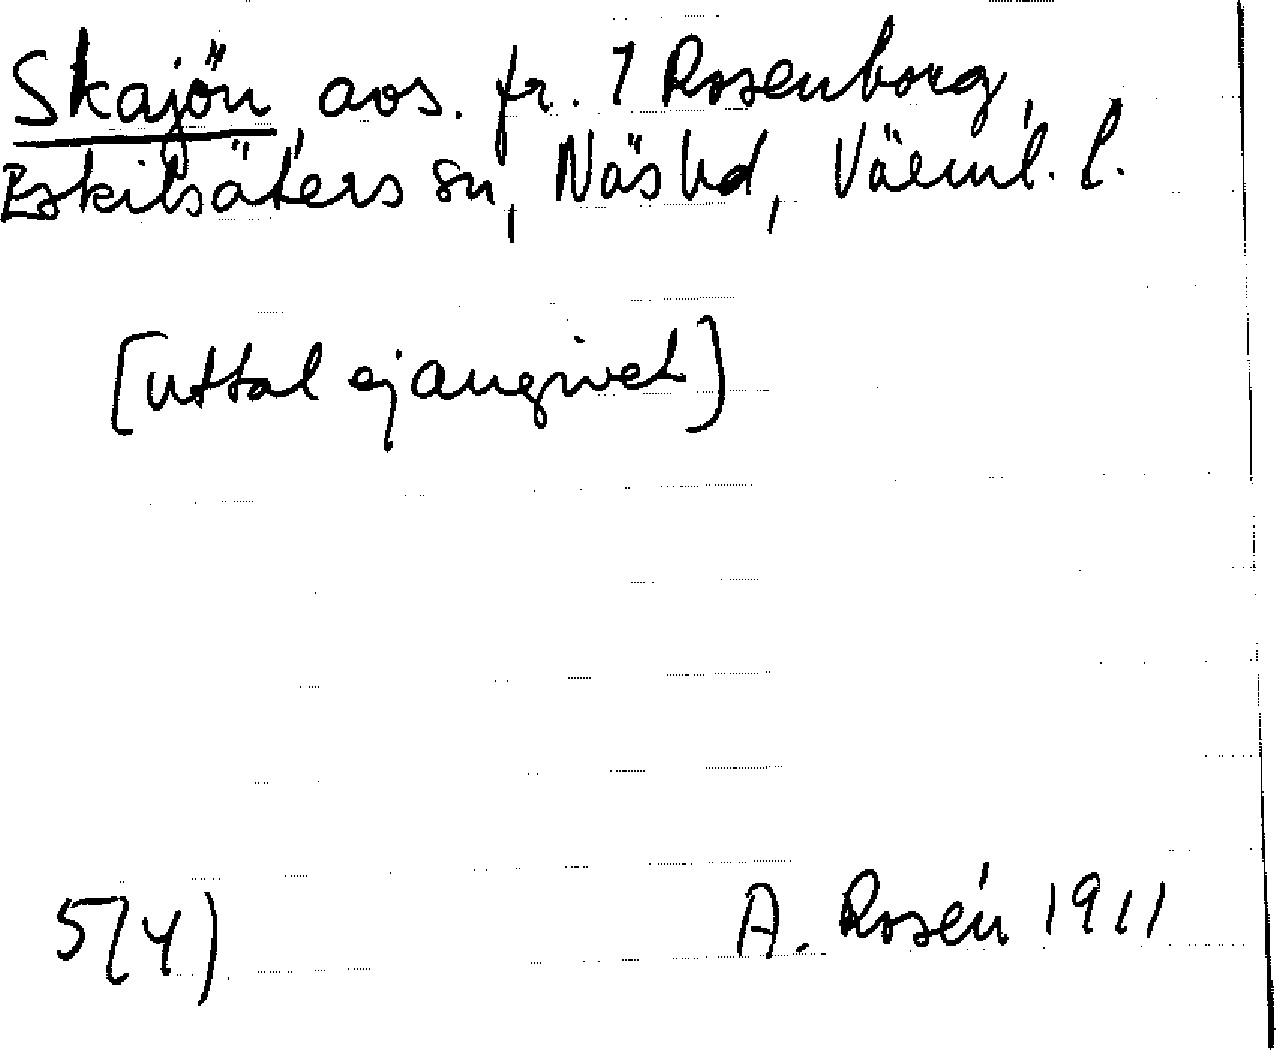 Skajön avs. fr. 1 Rosenborg,
Eskilsäters sn, Näs hd, Värml. l.
[uttal ej angivet]
5(4)
A. Rosén 1911